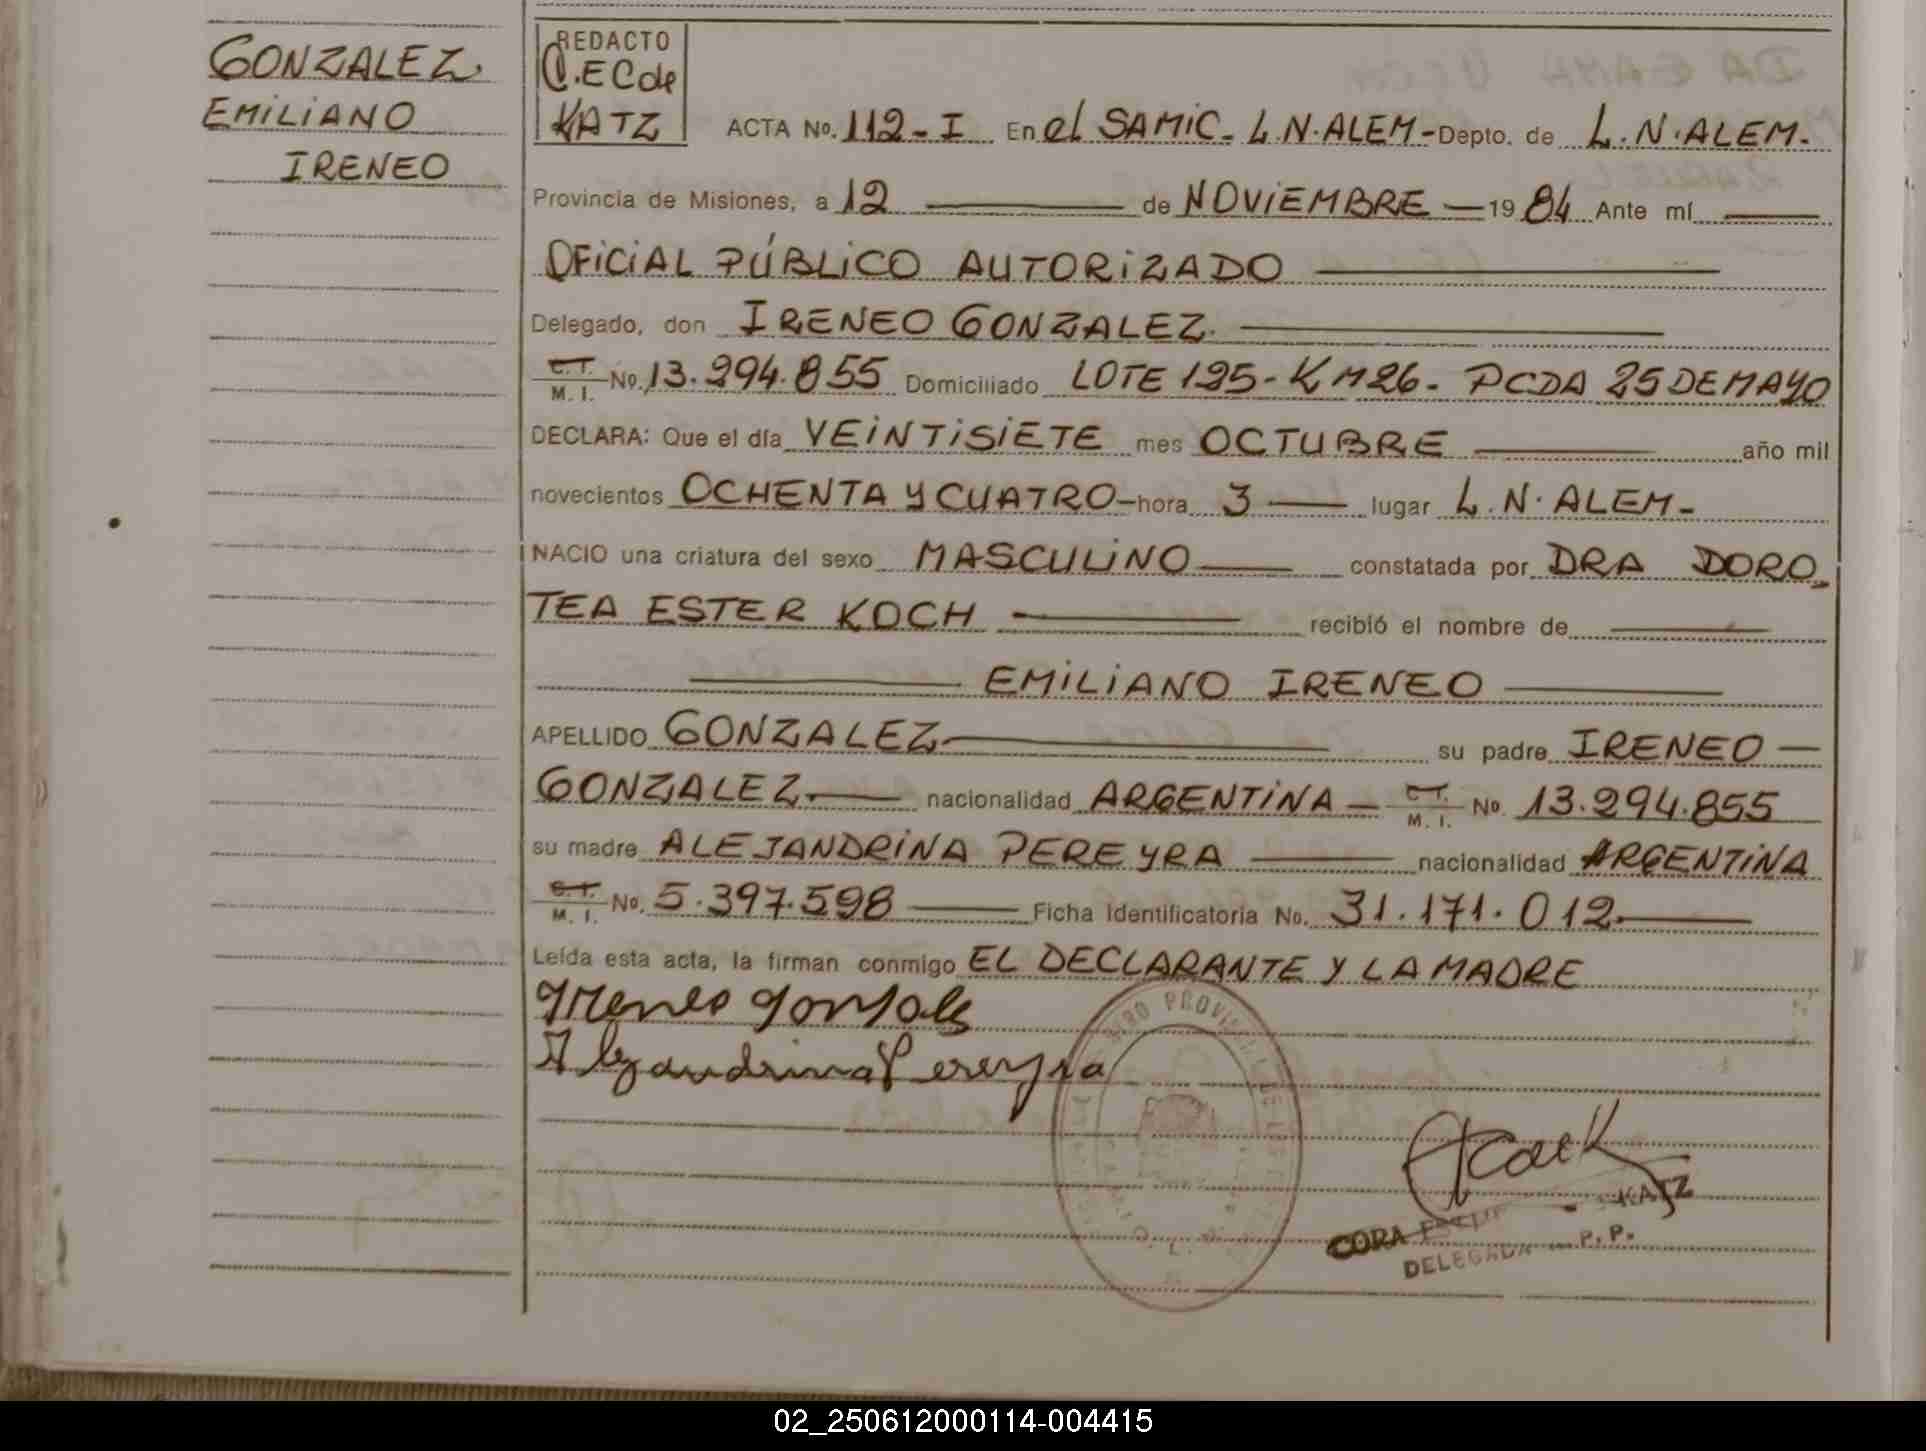 GONZALEZ
EMILIANO
IRENEO
REDACTO
C.E C de
KATZ
ACTA No. 112-I En el SAMIC- L.N.ALEM- Depto. de L.N.ALEM.
Provincia de Misiones, a 12 de NOVIEMBRE 19 84 Ante mí
OFICIAL PÚBLICO AUTORIZADO
Delegado, don IRENEO GONZALEZ.
C.I. M. I. No. 13.294.855 Domiciliado LOTE 195- KM 26- PCDA 25 DE MAYO
DECLARA: Que el día VEINTISIETE mes OCTUBRE año mil
novecientos OCHENTA Y CUATRO- hora 3 lugar L.N.ALEM-
NACIO una criatura del sexo MASCULINO constatada por DRA DORO_
TEA ESTER KOCH recibió el nombre de
EMILIANO IRENEO
APELLIDO GONZALEZ su padre IRENEO
GONZALEZ. nacionalidad ARGENTINA C.I. M. I. No. 13.294.855
su madre ALEJANDRINA PEREYRA nacionalidad ARGENTINA
C.I. M. I. No. 5.397.598 Ficha Identificatoria No. 31.171.012
Leída esta acta, la firman conmigo EL DECLARANTE Y LA MADRE
Ireneo Gonsales
Alejandrina Pereyra
KATZ
CORA
DELEGADA P. P.
02_250612000114-004415